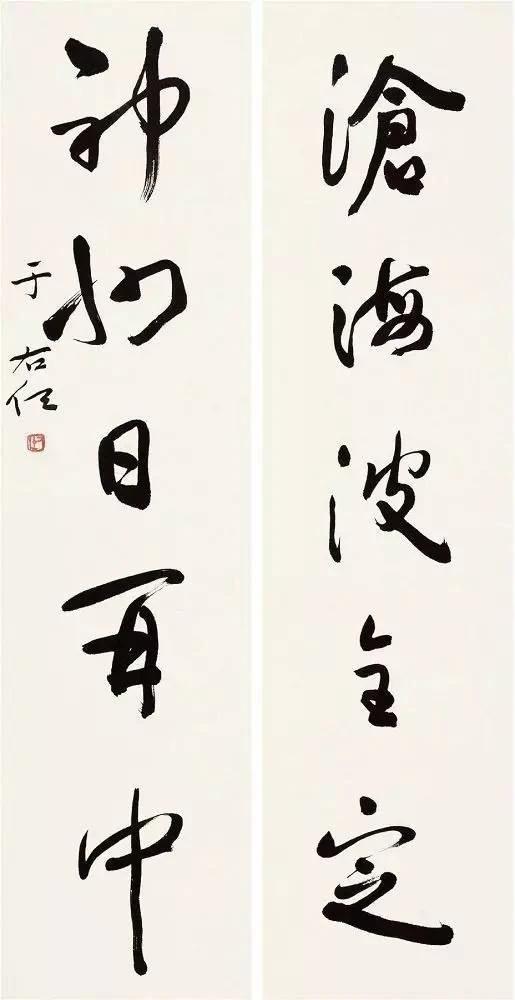 滄海波全定
神州日再中
于右任